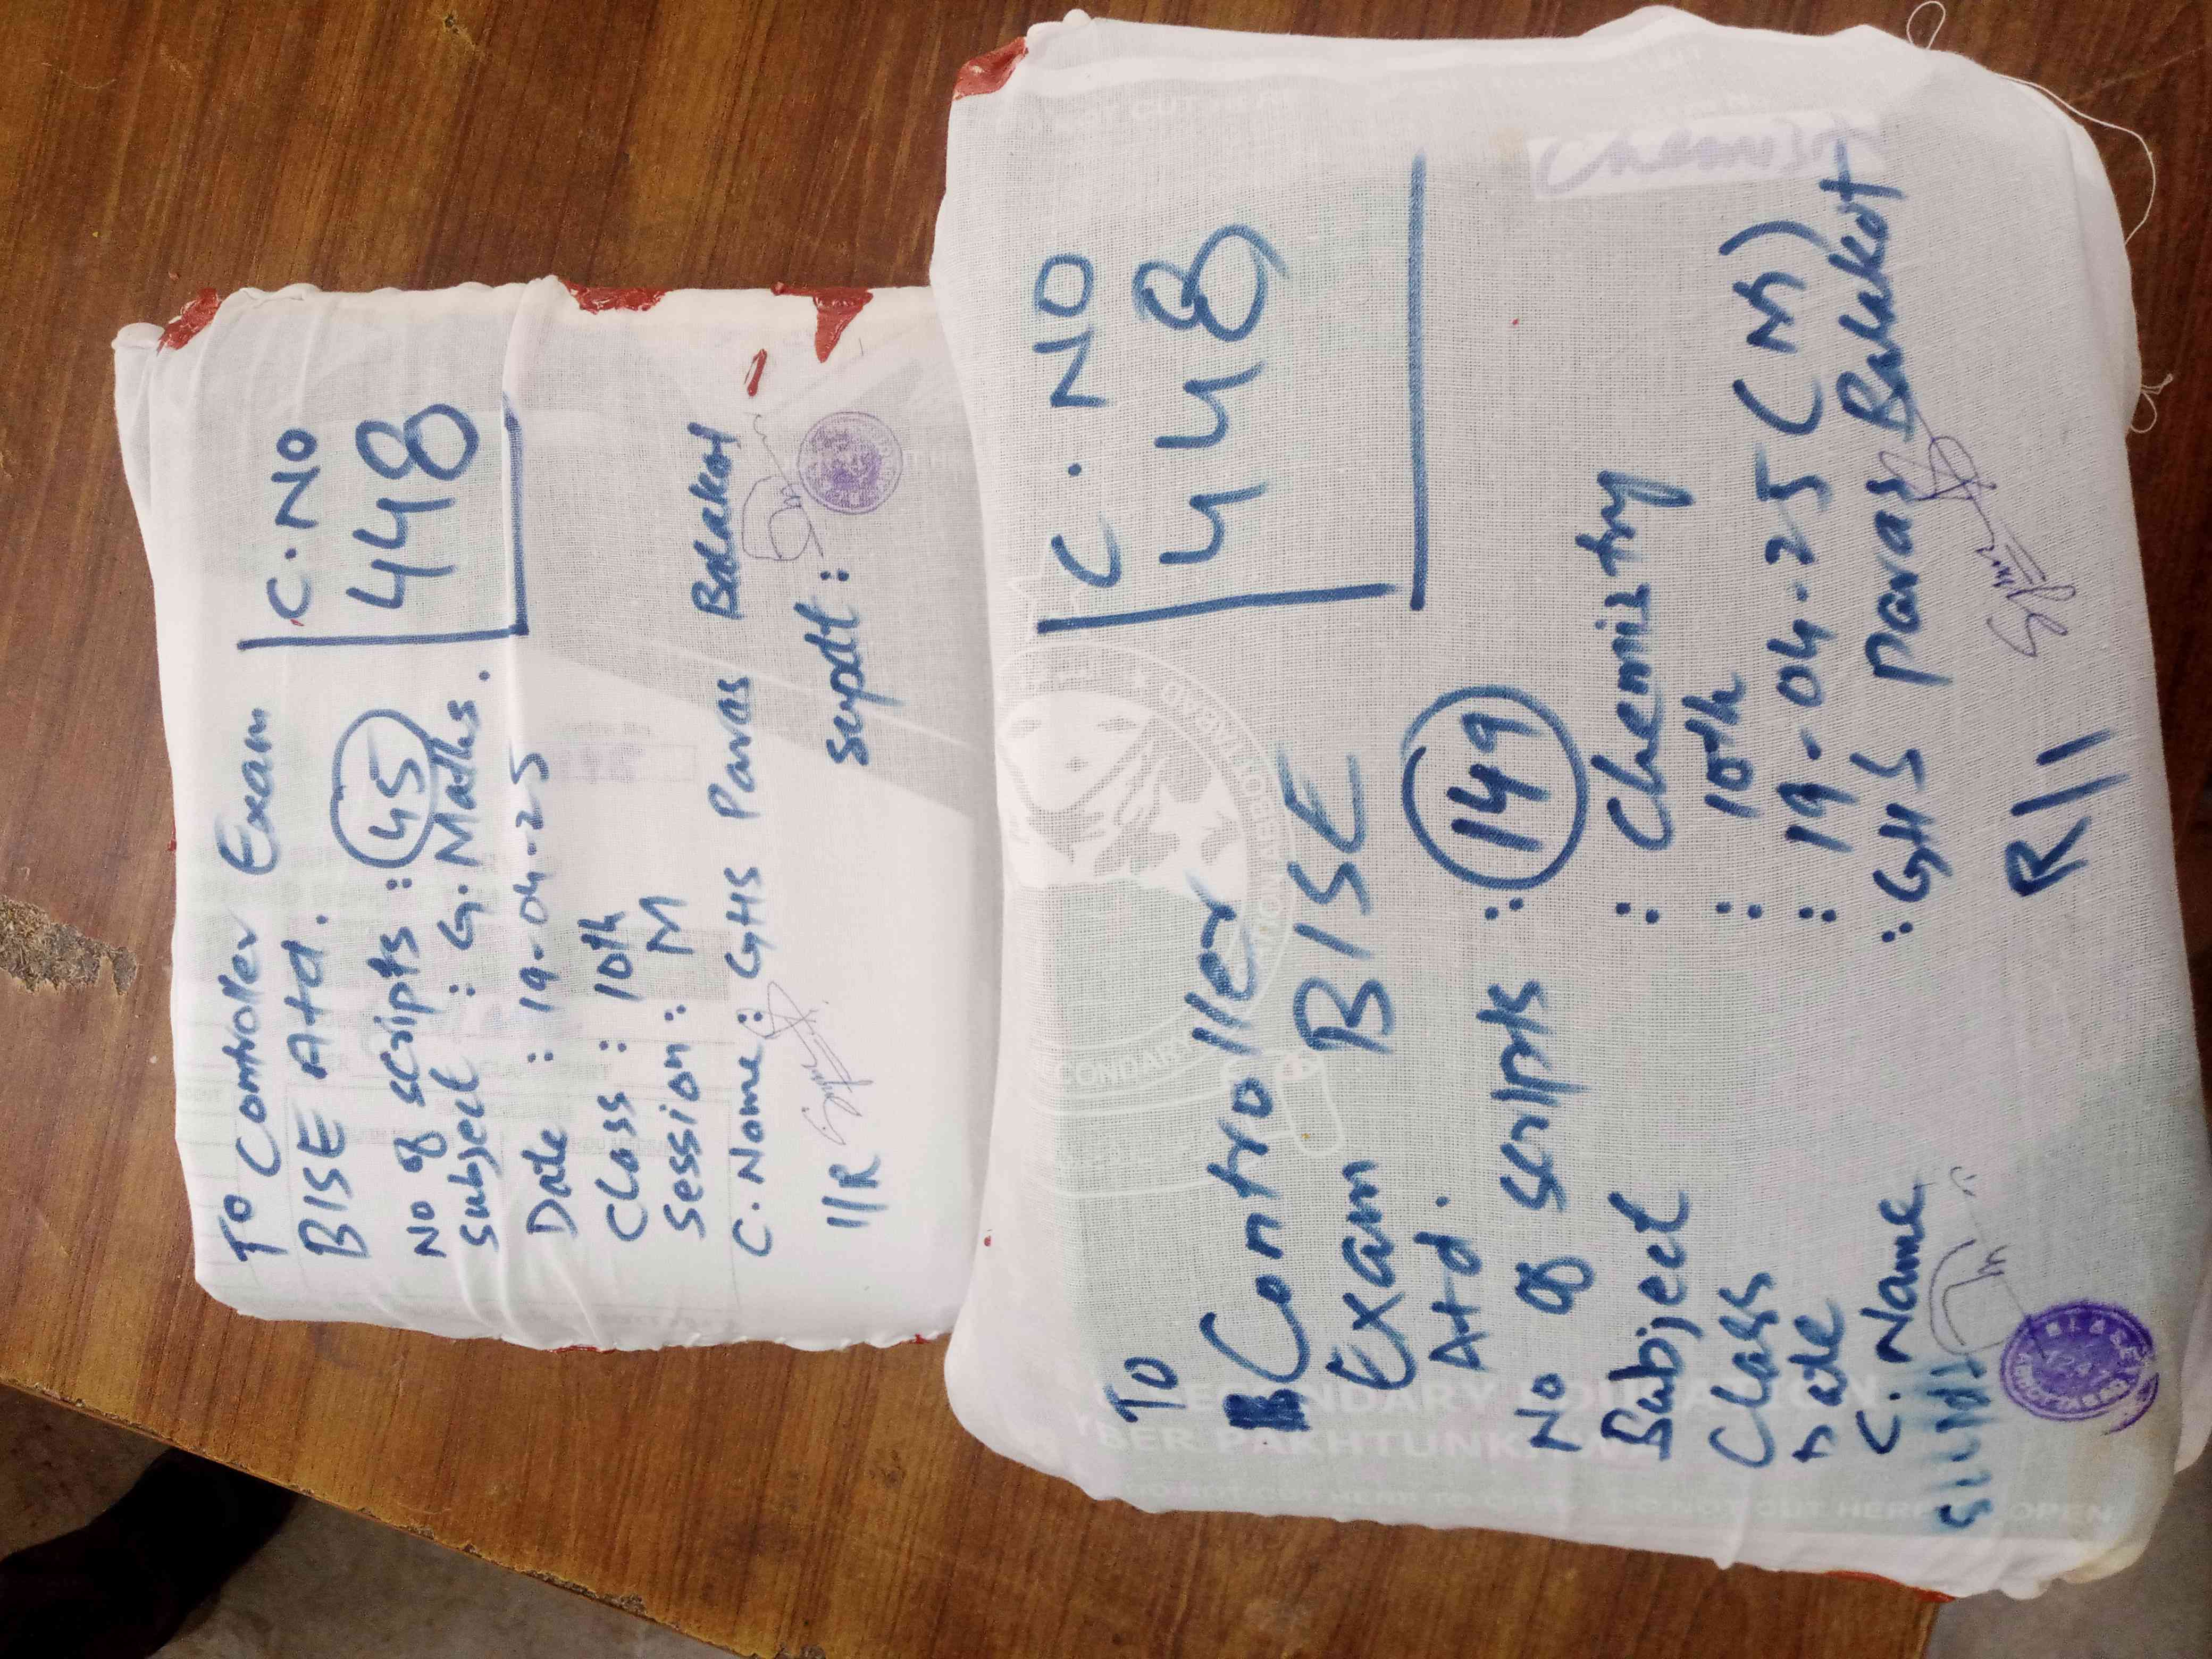 To Controller Exam
BISE Atd.
C.NO
448
No of scripts : 45
Subject : G. Maths.
Date : 19-04-25
Class : 10th
Session : M
C. Name : GHS Paras Balakot
Supdt :
11/R
To
Controller
Exam BISE
Atd.
C.NO
448
No of scripts : 149
Subject : Chemistry
Class : 10th
Date : 19-04-25 (M)
C. Name : GHS Paras Balakot
R11
Chemistry
SECONDARY EDUCATION
KHYBER PAKHTUNKHWA
DO NOT CUT HERE TO OPEN DO NOT CUT HERE TO OPEN